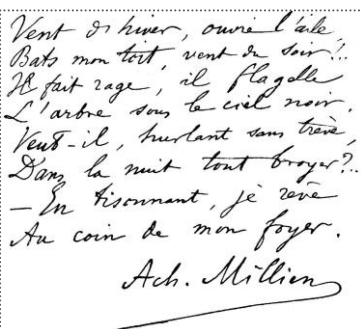 Vent d'hiver, ouvre l'aile,
Bats mon toit, vent du soir!..
Il fait rage, il flagelle
L'arbre sous le ciel noir.
Veut-il, hurlant sans trève,
Dans la nuit tout broyer?..
— En tisonnant, je rêve
Au coin de mon foyer.
Ach. Millien